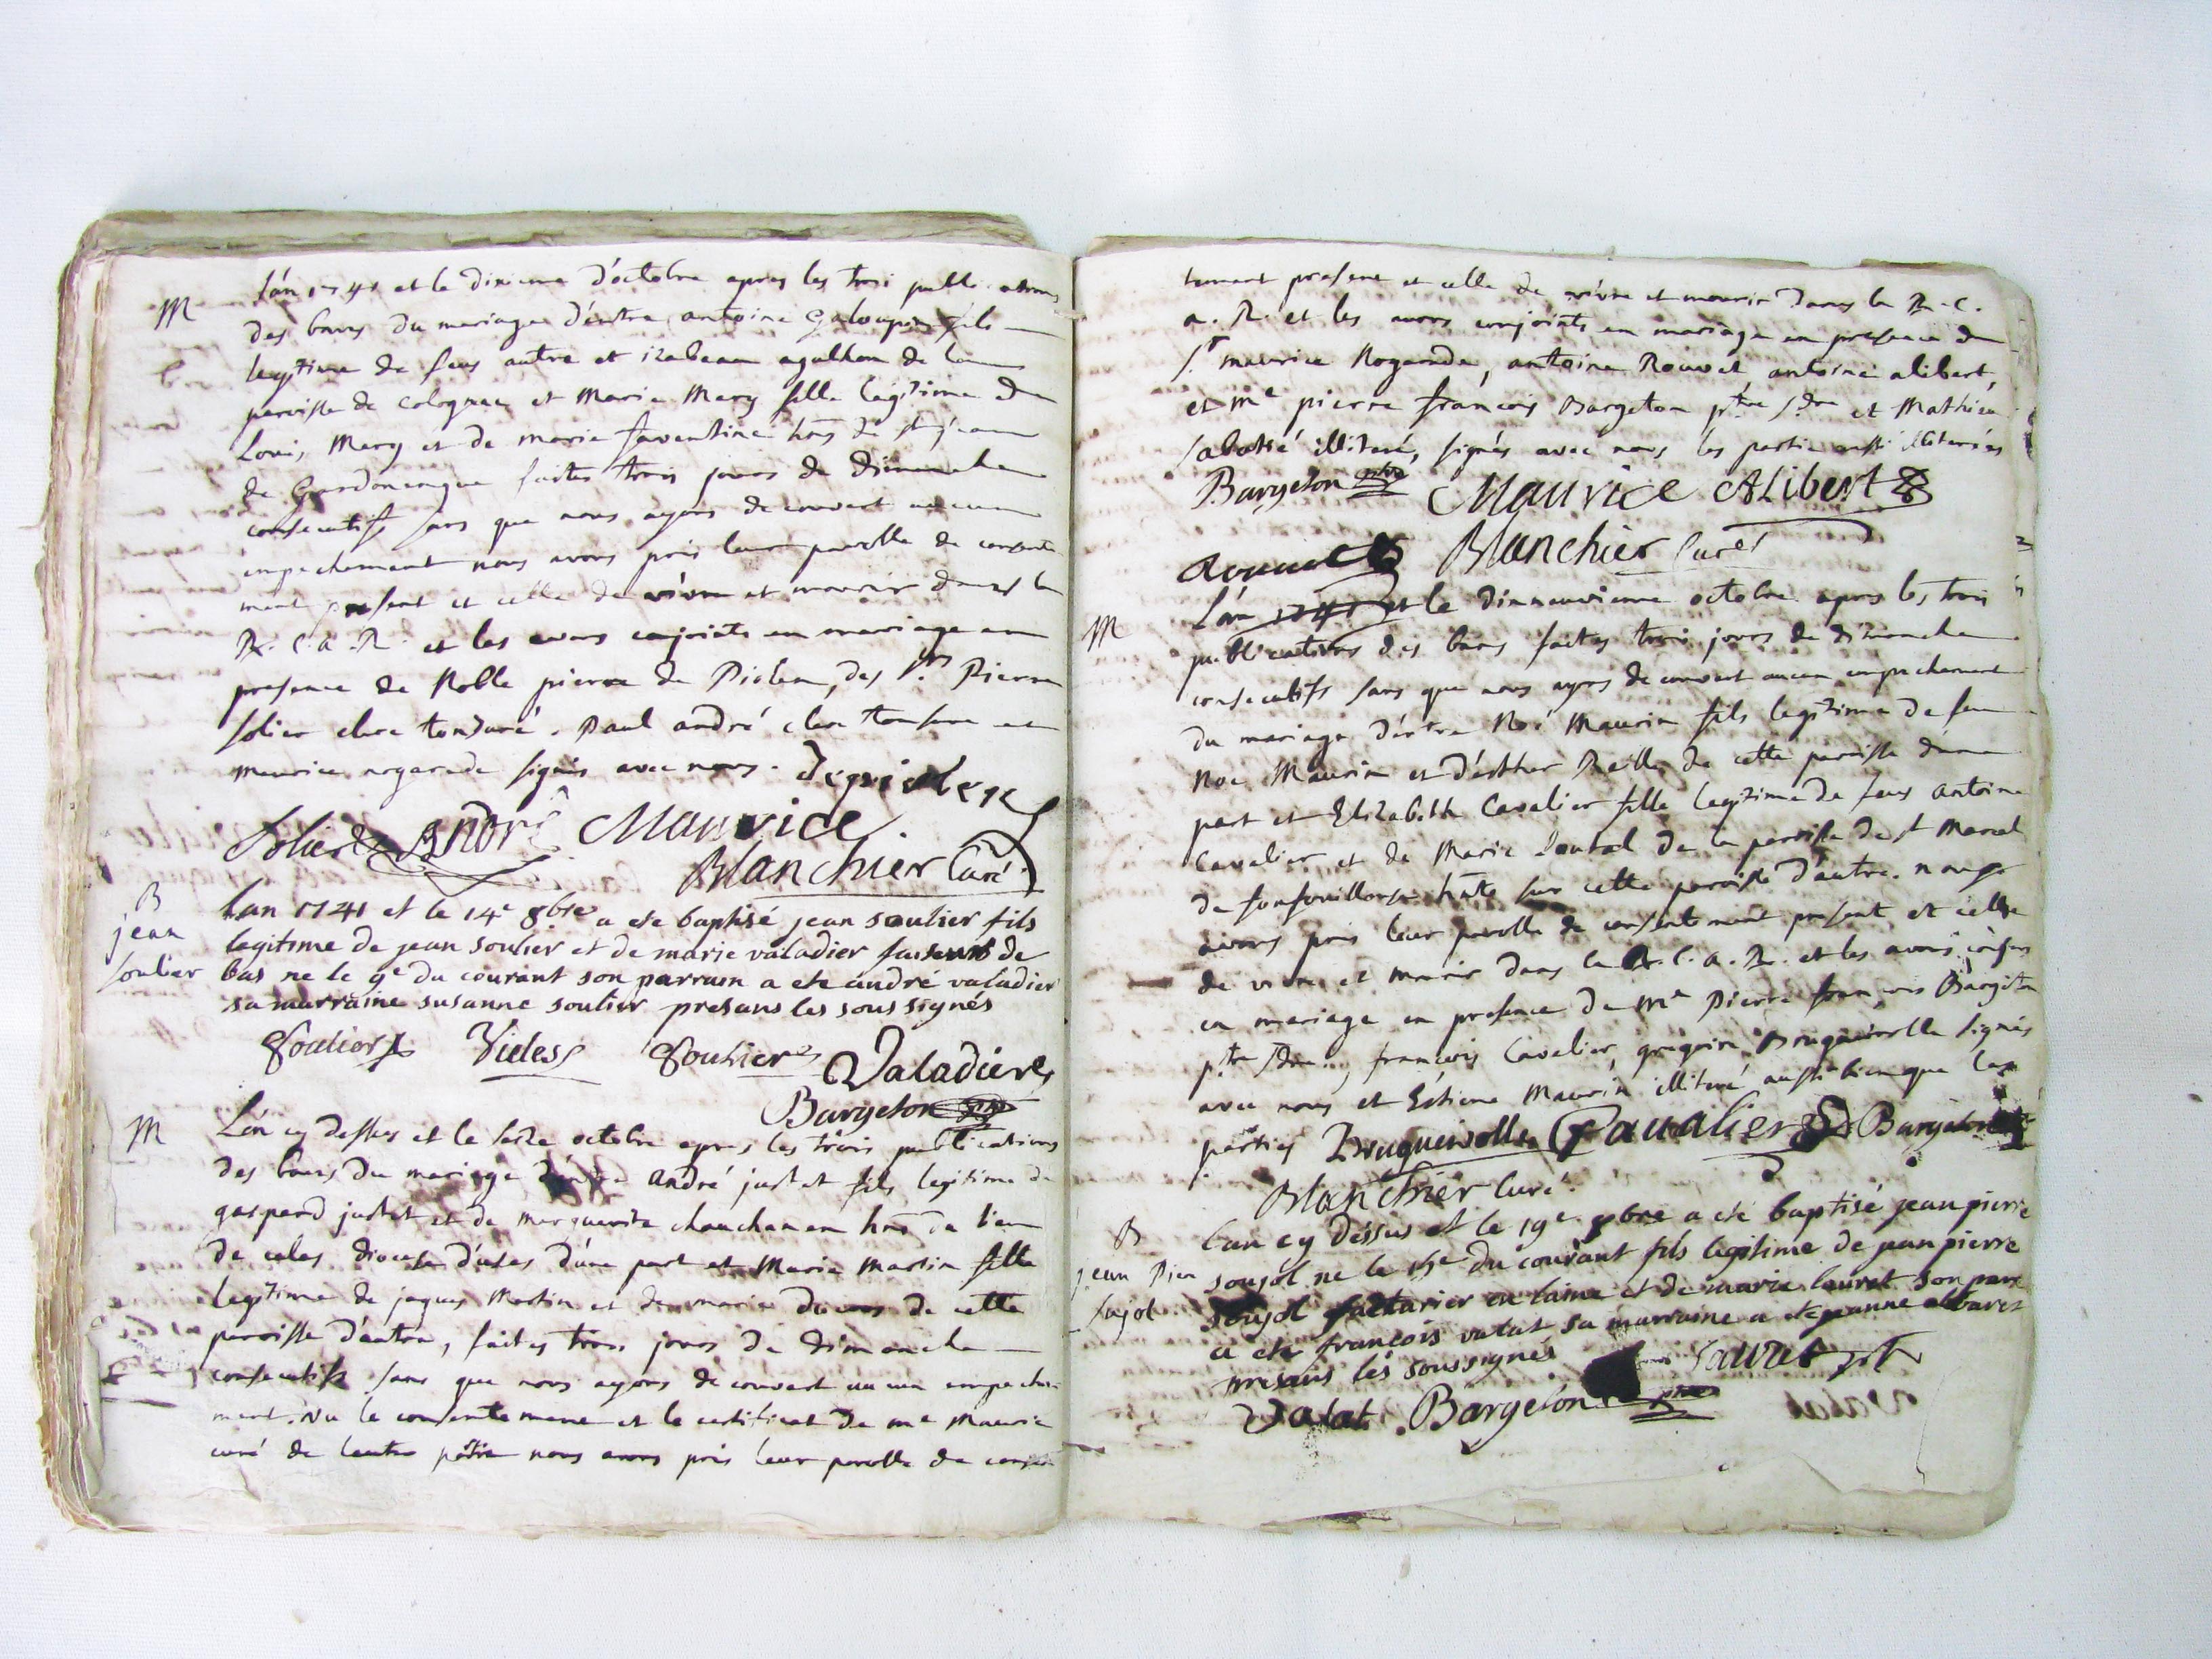 M
L'an 1741 et le dixieme d'octobre apres les trois publications
des bans du mariage d'entre antoine Galoupin fils
legitime de feus autre et izabeau agulhon de la
paroisse de Colognac et Marie Mary fille legitime de
Loüis Mary et de marie faventine hns de st jean
de Gardonenque faites trois jours de dimanche
consecutifs sans que nous ayons decouvert aucun
empechement nous avons pris leur parolle de consente
ment present et celle de vivre et mourir dans la
R. C. A. R. et les avons conjoints en mariage en
presence de Noble pierre de Piolen, des srs Pierre
solier clerc tonsuré, Paul andré clerc tonsuré et
maurice nogarede signés avec nous. depiolenc
Solier André Maurice
Blanchier Curé
B
jean
soulier
Lan 1741 et le 14e 8bre a ete baptisé jean soulier fils
legitime de jean soulier et de marie valadier faiseur de
bas ne le 9e du courant son parrain a ete andré valadier
sa marraine susanne soulier presans les soussignés
Soulier Videss Soulier Valadier
Bargeton ptre
M
L'an cy dessus et le seize octobre apres les trois publications
des bans du mariage d'entre andré justet fils legitime de
gaspard justet et de marguerite chauchan en hns du lieu
de celas diocese d'uses d'une part et Marie Martin fille
legitime de jaques Martin et de marie ducros de cette
paroisse d'autre, faites trois jours de dimanche
consecutifs sans que nous ayons decouvert aucun empeche
ment. Vu le consentement et le certificat de me Maurice
curé de leutre partie nous avons pris leur parolle de consen
tement present et celle de vivre et mourir dans la R. C.
a. R. et les avons conjoints en mariage en presence du
sr maurice Nogarede, antoine Rouvet, antoine alibert,
et me pierre françois Bargeton ptre sdre et Mathieu
sabatié illiteré, signés avec nous les partie aussi illiterées
Bargeton ptre Maurice ALibert
Rouvet Blanchier Curé
M
L'an 1741 et le dixneuvieme octobre apres les trois
publications des bans faites trois jours de dimanche
consecutifs sans que nous ayons decouvert aucun empechement
du mariage d'entre Noé Maurin fils legitime de feu
Noe Maurin et d'esther Reilles de cette paroisse d'une
part et Elizabeth Cavalier fille legitime de feus antoine
Cavalier et de Marie Soutal de la paroisse de st Marcel
de fonfouillouse hnte sur cette paroisse d'autre. nous
avons pris leur parolle de consentement present, et celle
de vivre et mourir dans la R. C. a. R. et les avons conjoins
en mariage en presence de Me Pierre françois Bargeton
ptre sdre, françois Cavalier, gregoire Brugueirolle signés
avec nous et Estiene Maurin illiteré aussi bien que les
parties Bruguerolle Cavalier Bargeton
Blanchier Curé.
B
jean Pier
sujol
Lan cy dessus et le 19e 8bre a eté baptisé jean pierre
soujol ne le 15e du courant fils legitime de jean pierre
soujol facturier en laine et de marie lauret son parr
a ete françois valat sa marraine a ete jeanne albaret
presans les soussignés Lauret
Valat Bargeton ptre